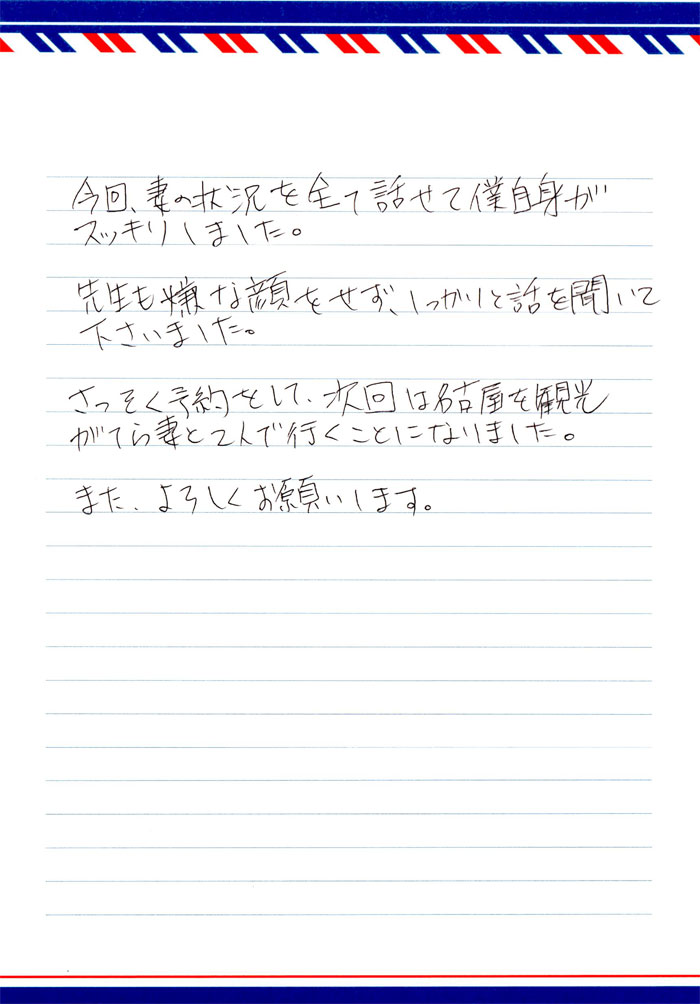 今回、妻の状況を全て話せて僕自身が
スッキリしました。
先生も嫌な顔をせず、しっかりと話を聞いて
下さいました。
さっそく予約をして、次回は名古屋を観光
がてら妻と2人で行くことになりました。
また、よろしくお願いします。